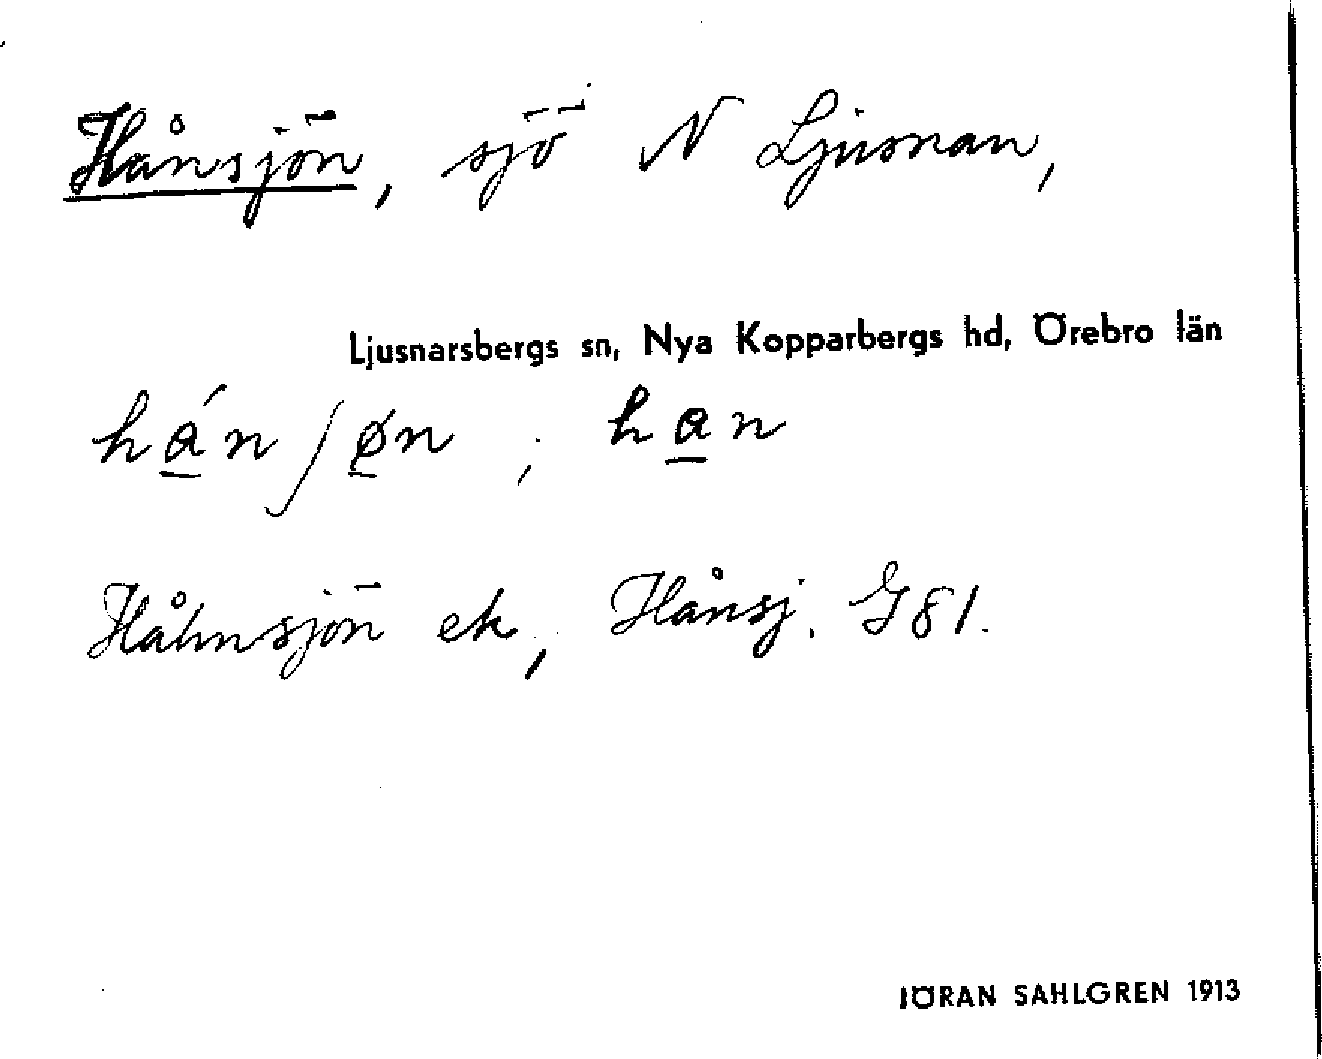 Hånsjön, sjö N Ljusnan,
Ljusnarsbergs sn, Nya Kopparbergs hd, Örebro län
há̱nʃø̱n ; ha̱n
Håhnsjön ek, Hånsj. G81.
JÖRAN SAHLGREN 1913